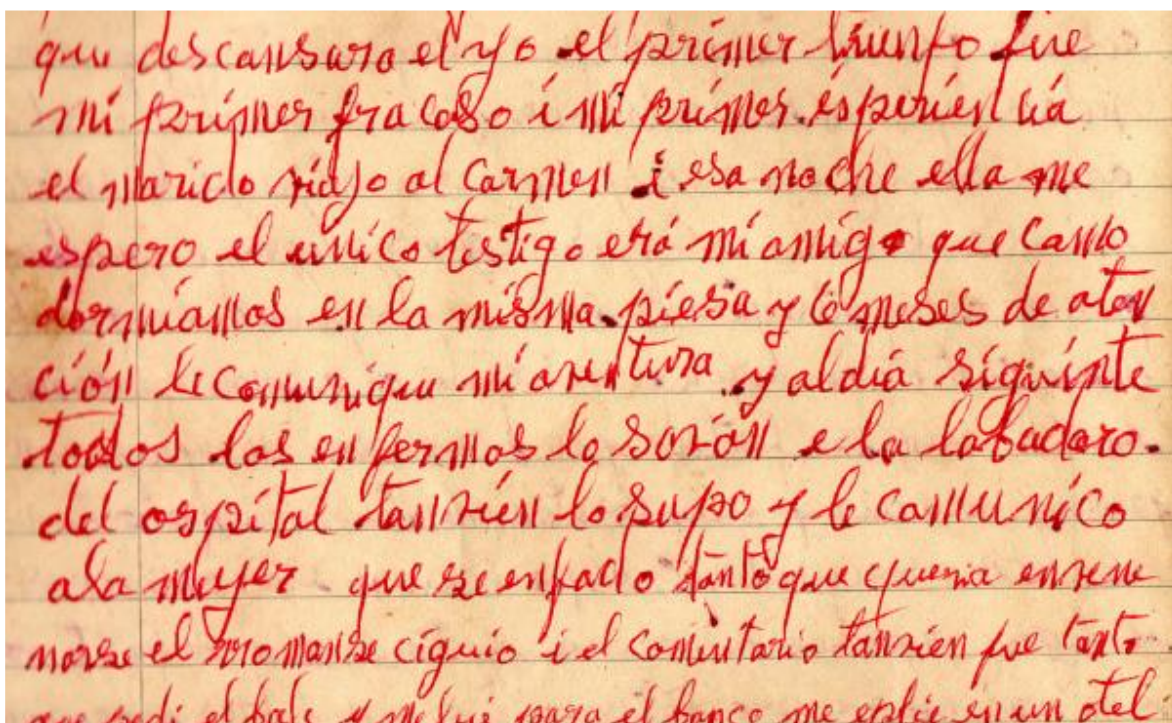 que descansara el yo el primer triunfo fue
mi primer fracaso i mi primer esperiencia
el marido viajo al Carmen i esa noche ella me
espero el unico testigo era mi amigo que como
dormiamos en la misma piesa y 6 meses de aten
ción le comunique mi aventura y al dia siguinte
todos los enfermos lo e la labadaro
del ospital tanvien lo supo y le comunico
a la mujer que se enfado tanto que queria envene
narse el rromanse ciguio i el comentario tanvien fue tanto
que pedi el bale y me fui para el banco me en un otel